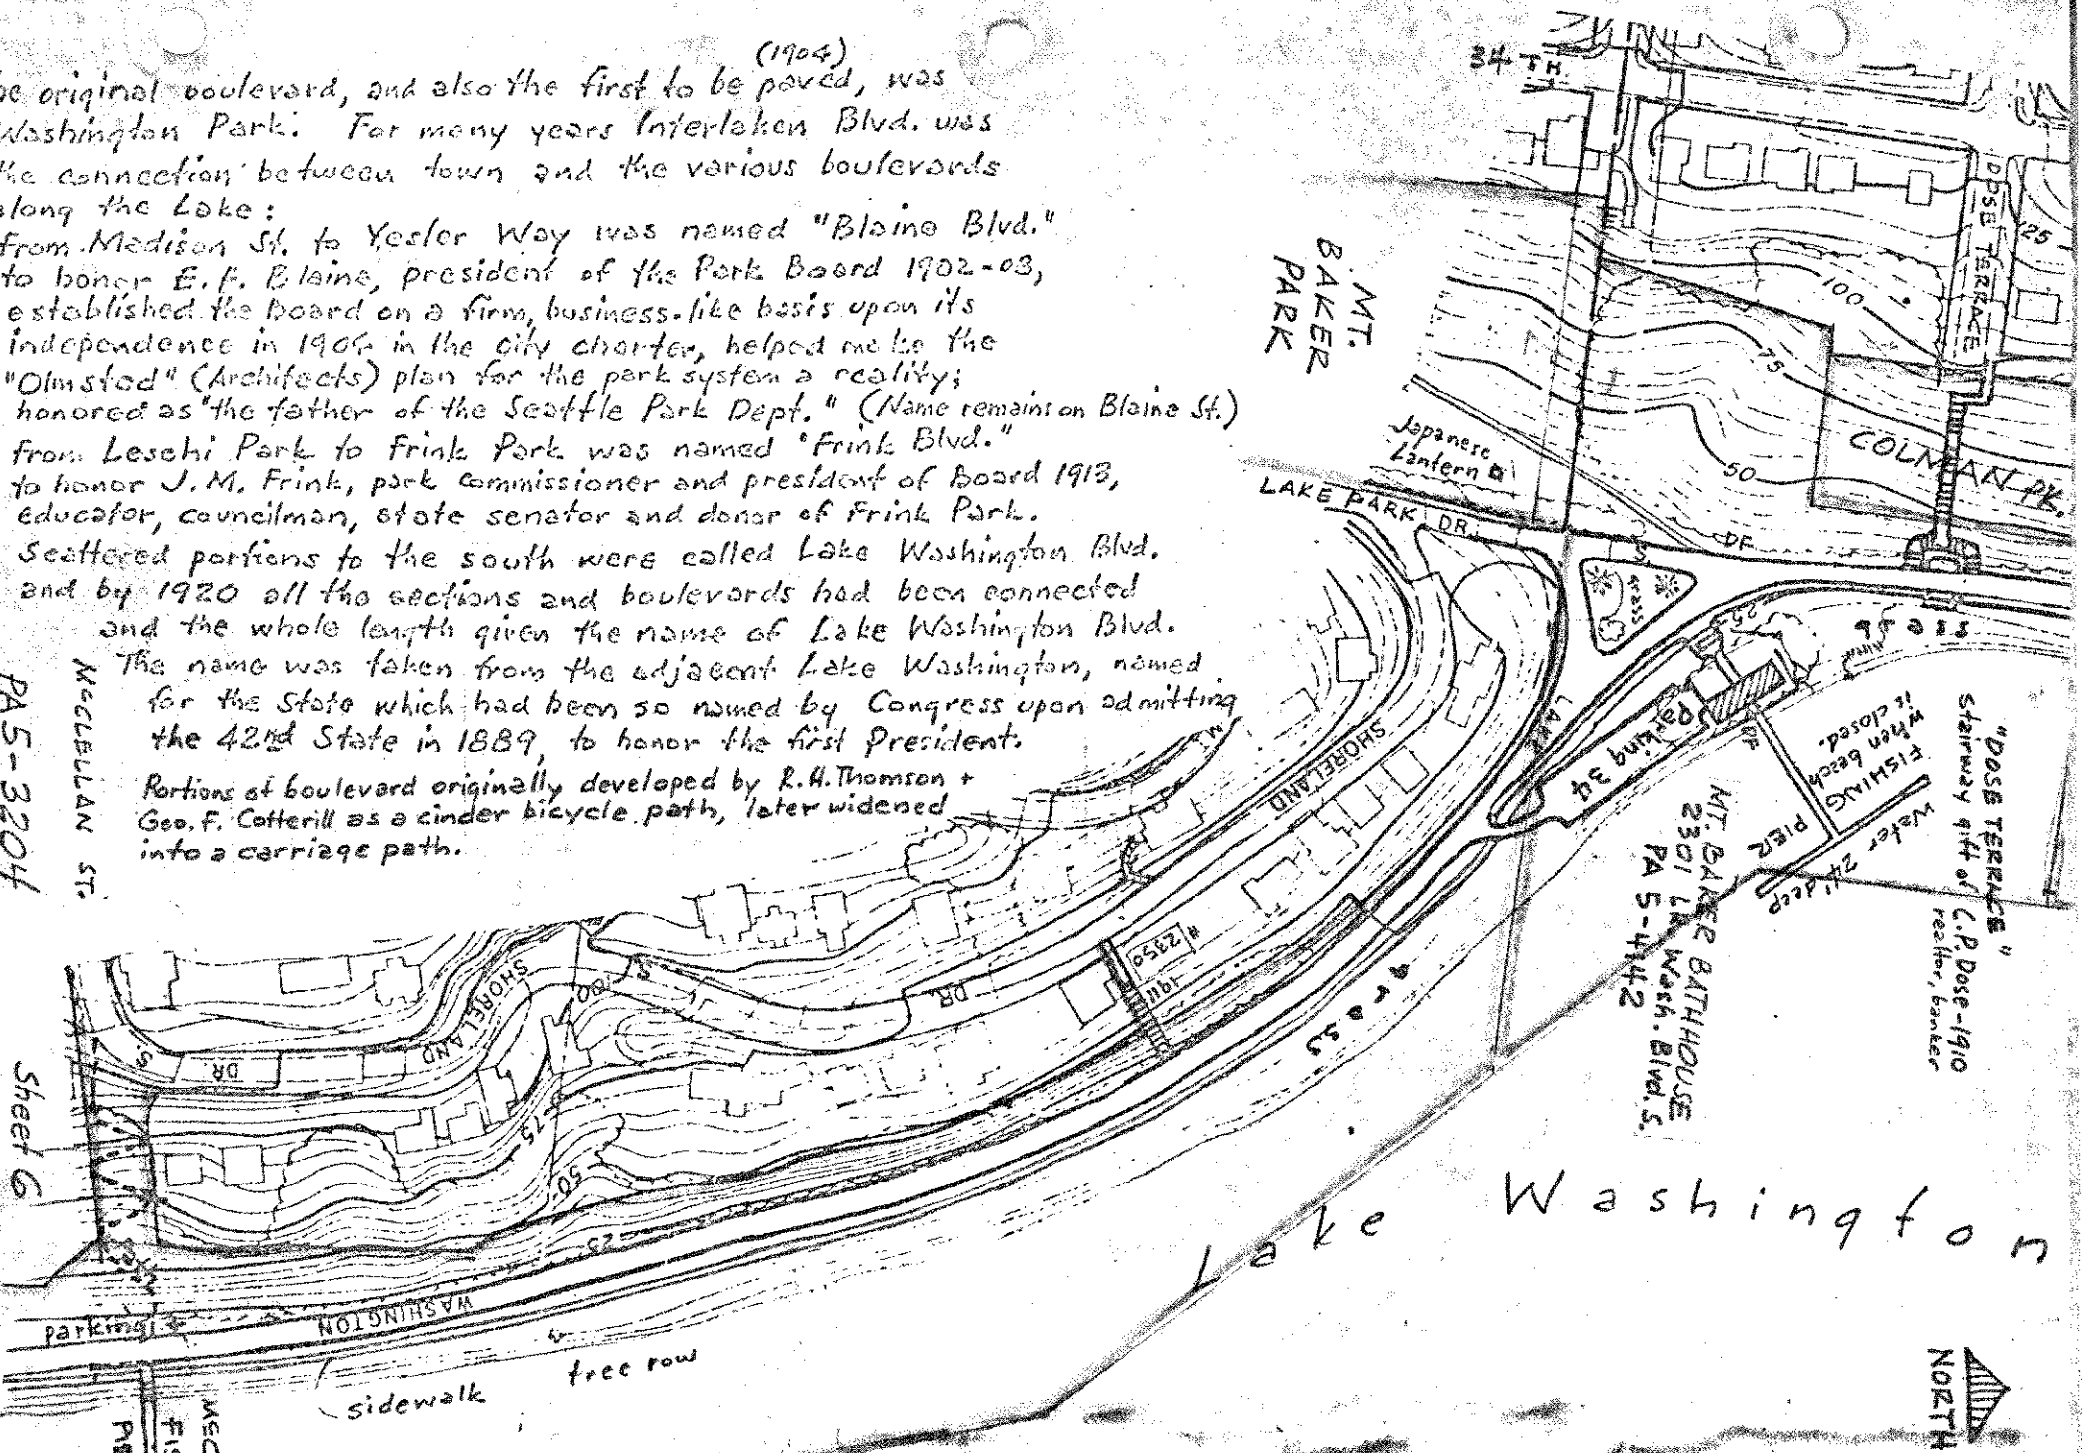 (1904)
original boulevard, and also the first to be paved, was
Washington Park. For many years Interlaken Blvd. was
the connection between town and the various boulevards
along the Lake:
from Madison St. to Yesler Way was named "Blaine Blvd."
to honor E. F. Blaine, president of the Park Board 1902-03,
established the board on a firm, business-like basis upon its
independence in in the city charter, helped make the
"Olmsted" (Architects) plan for the park system a reality;
honored as "the father of the Seattle Park Dept." (Name remains on Blaine St.)
from Leschi Park to Frink Park was named "Frink Blvd."
to honor J. M. Frink, park commissioner and president of Board 1913,
educator, councilman, state senator and donor of Frink Park.
Scattered portions to the south were called Lake Washington Blvd.
and by 1920 all the sections and boulevards had been connected
and the whole length given the name of Lake Washington Blvd.
The name was taken from the adjacent Lake Washington, named
for the State which had been so named by Congress upon admitting
the 42nd State in 1889, to honor the first President.
Portions of boulevard originally developed by R.H. Thomson +
Geo. F. Cotterill as a cinder bicycle path, later widened
into a carriage path.
34TH
DOSE TERRACE
125
100
75
50
COLMAN PK.
MT.
BAKER
PARK
Japanese
Lantern
LAKE PARK DR.
DF
grass
25
grass
Parking 34
DF
LAKE
FISHING
when beach
is closed.
PIER
Water 24' deep
"DOSE TERRACE"
Stairway gift of C.P. Dose-1910
realtor, banker
MT. BAKER BATHHOUSE
2301 LK Wash. Blvd. S.
PA 5-4142
MT.
SHORELAND
DR.
"2350"
1911
grass
SHORELAND
DR.
S.
100
75
50
25
McCLELLAN ST.
PA5-3204
Sheet 6
parking
WASHINGTON
sidewalk
tree row
Lake Washington
NORTH